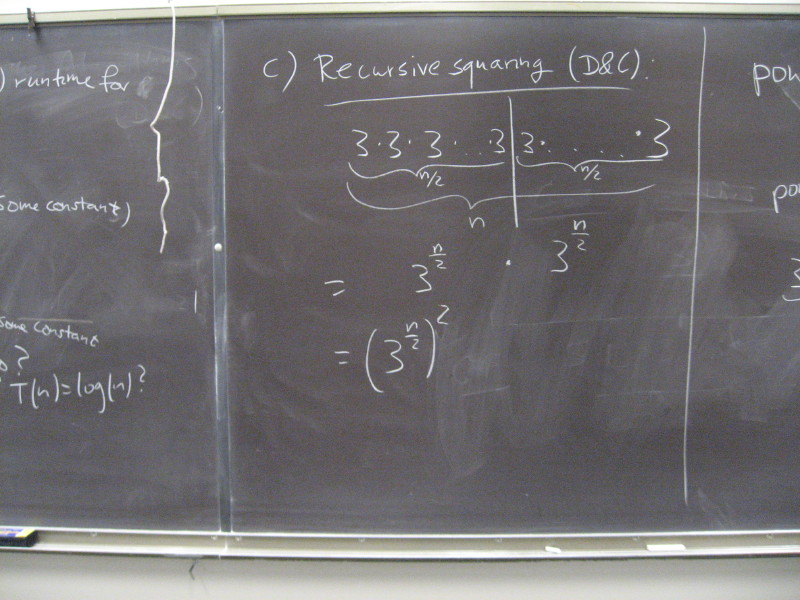 ) runtime for
some constant)
some constant
?
T(n)=log(n)?
c) Recursive squaring (D&C):
3·3·3·...3 | 3· . . . . ·3
n/2 n/2
n
= 3^(n/2) · 3^(n/2)
= (3^(n/2))^2
3